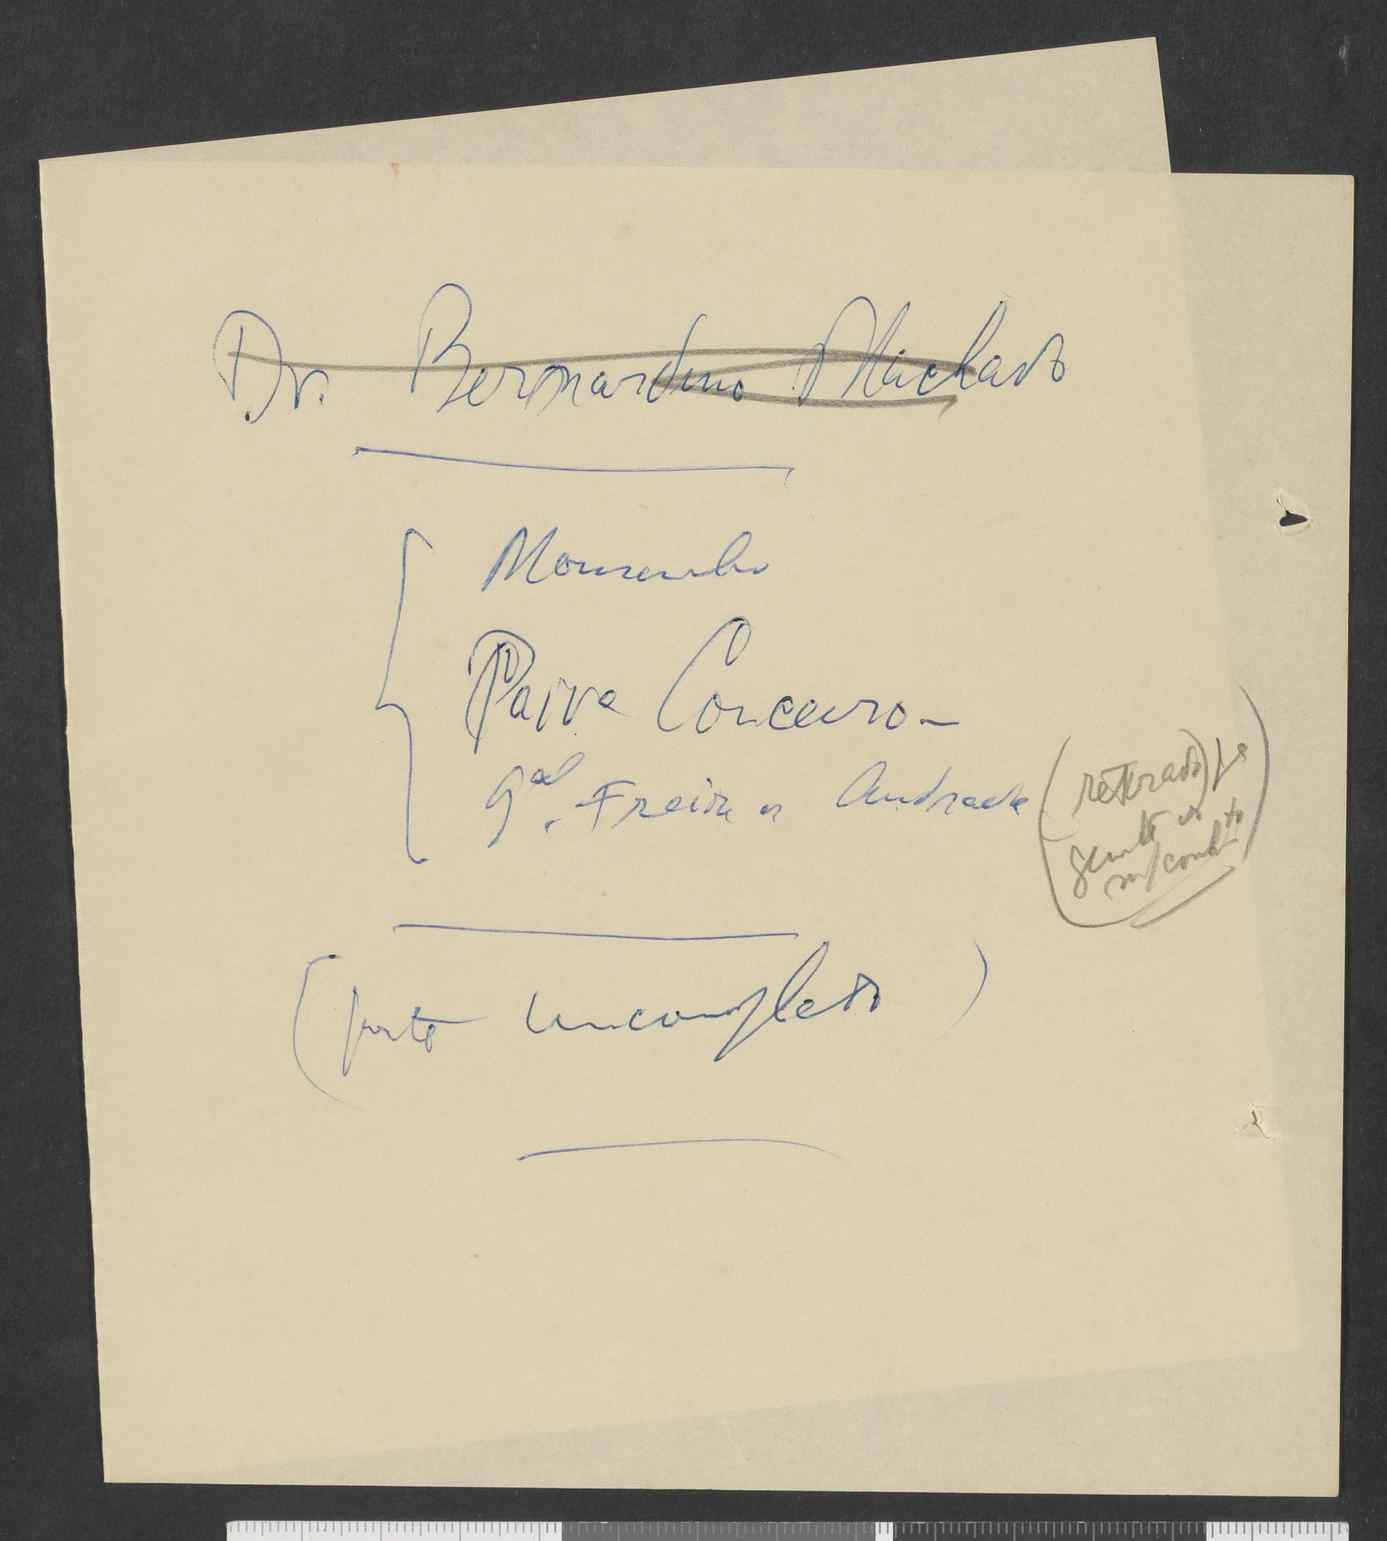 Dr. Bernardino Machado
Mousinho
Paiva Couceiro -
Gal. Freire de Andrade (retirado) p.a
junto
(incompleto)